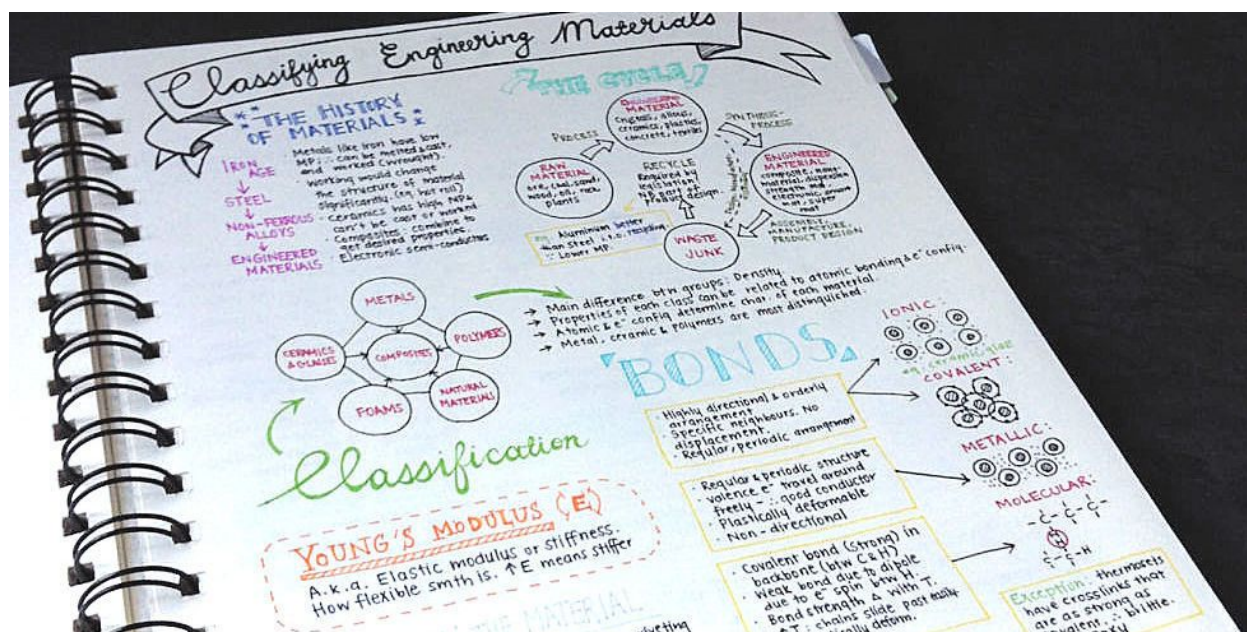 Classifying Engineering Materials
THE HISTORY
OF MATERIALS
IRON
AGE
STEEL
NON-FERROUS
ALLOYS
ENGINEERED
MATERIALS
Metals like iron have low
MP ∴ can be melted & cast,
and worked (wrought).
Working would change
the structure of material
significantly. (ex, hot roll)
ceramics has high MP &
can't be cast or worked
Composites: combine to
get desired properties.
Electronic semi-conductors
THE CYCLE
MATERIAL
crystals, alloys,
ceramics, plastics,
concrete, textiles
PROCESS
SYNTHESIS-
PROCESS
RAW
MATERIAL
ore, coal, sand,
wood, oil, rock,
plants
RECYCLE
Required by
legislation
as part of
product design.
ENGINEERED
MATERIAL
composite, mono-
material, dispersion
strength mat.
electronic, amorp
mat, super
mat
ASSEMBLY,
MANUFACTURE,
PRODUCT DESIGN
WASTE
JUNK
eg. Aluminum better
than steel i.t.o. recycling
∵ Lower MP.
METALS
CERAMICS
& GLASSES
COMPOSITES
POLYMERS
FOAMS
NATURAL
MATERIALS
Classification
→ Main difference btn groups: Density.
→ Properties of each class can be related to atomic bonding & e⁻ config.
→ Atomic & e⁻ config determine char. of each material.
→ Metal, ceramic & polymers are most distinguished.
BONDS
· Highly directional & orderly
arrangement
· Specific neighbours. No
displacement.
· Regular, periodic arrangement
· Regular & periodic structure
· valence e⁻ travel around
freely ∴ good conductor
· Plastically deformable
· Non-directional
· Covalent bond (strong) in
backbone (btw C & H)
· Weak bond due to dipole
due to e⁻ spin btw H.
· Bond strength Δ with T.
↑T: chains slide past easily
deform.
IONIC:
eg: ceramic, glas
COVALENT:
METALLIC:
MOLECULAR:
-C-C-C-
C-C-H
Exception: thermosets
have crosslinks that
are as strong as
covalent, ∴ brittle.
YOUNG'S MODULUS (E)
A.k.a. Elastic modulus or stiffness.
How flexible smth is. ↑E means stiffer
THE MATERIAL